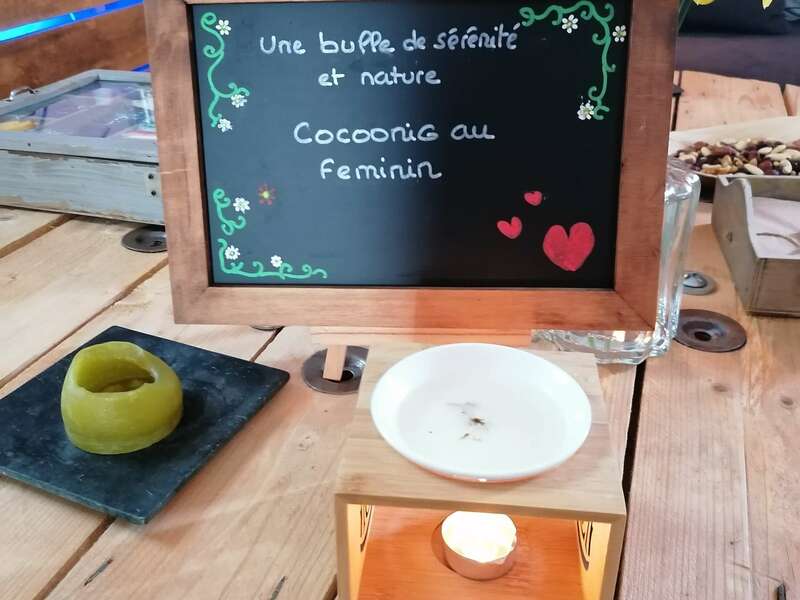 Une buffe de sérénité
et nature
Cocoonig au
Feminin